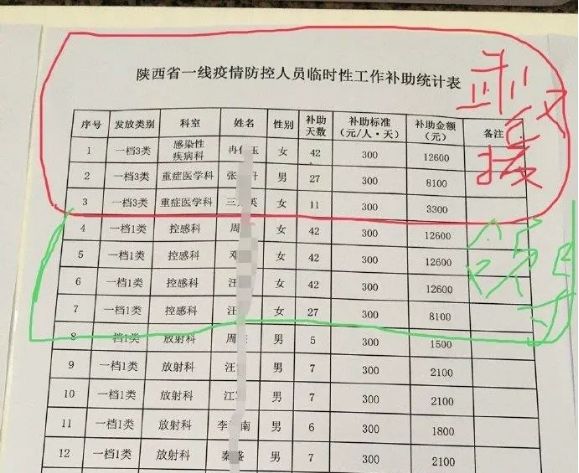 陕西省一线疫情防控人员临时性工作补助统计表
序号 发放类别 科室 姓名 性别 补助天数 补助标准（元/人·天） 补助金额（元） 备注
1 一档3类 感染性疾病科 冉 玉 女 42 300 12600
2 一档3类 重症医学科 张 丹 男 27 300 8100
3 一档3类 重症医学科 英 女 11 300 3300
4 一档1类 控感科 周 女 42 300 12600
5 一档1类 控感科 邓 女 42 300 12600
6 一档1类 控感科 汪 女 42 300 12600
7 一档1类 控感科 汪 女 27 300 8100
8 档1类 放射科 周 男 5 300 1500
9 一档1类 放射科 汪 男 7 300 2100
10 一档1类 放射科 江 男 7 300 2100
11 一档1类 放射科 李 南 男 6 300 1800
12 一档1类 放射科 秦 男 7 300 2100